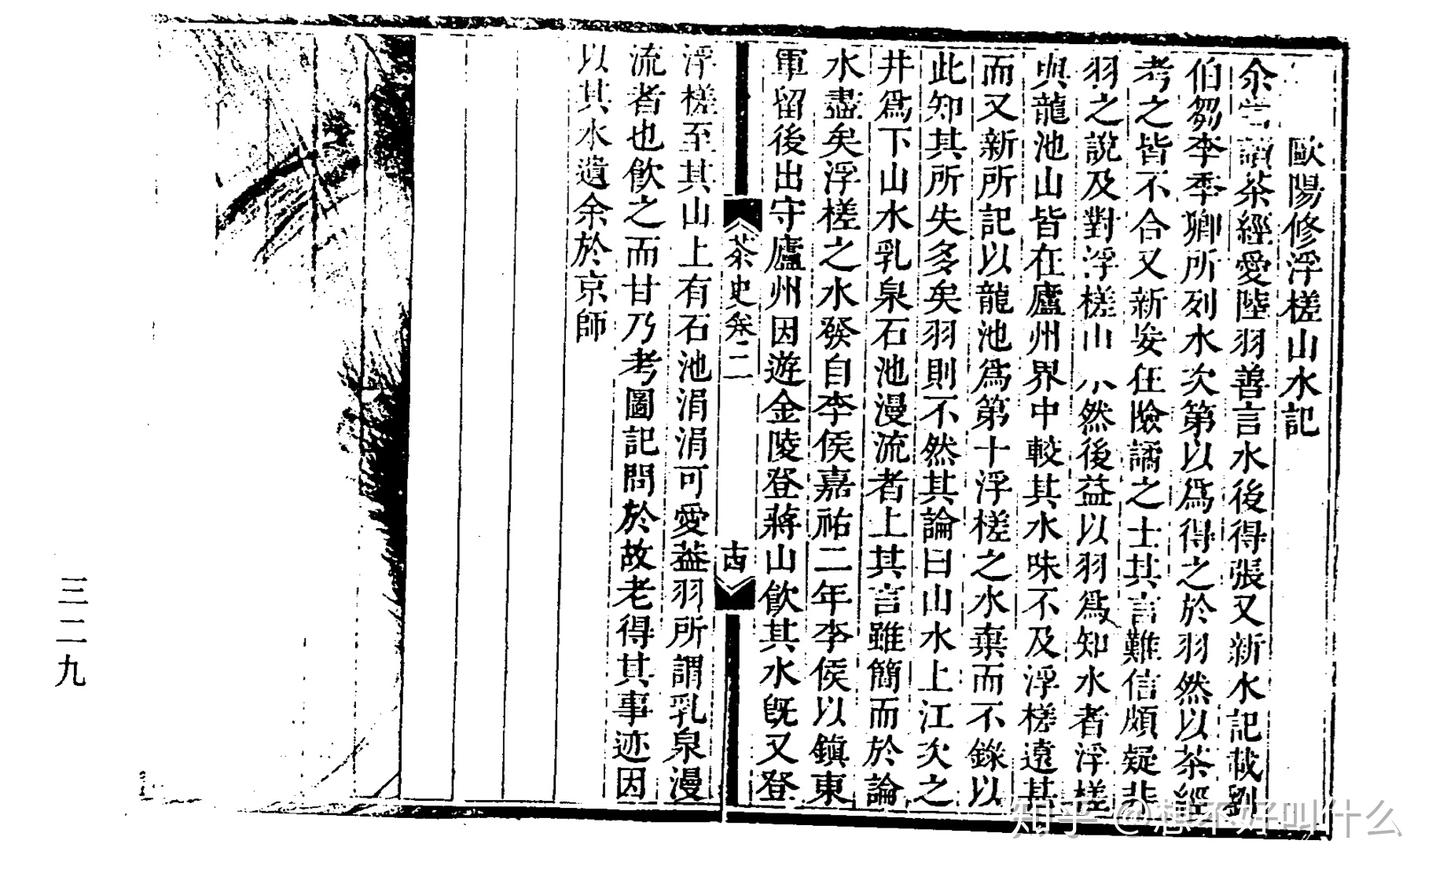 歐陽修浮槎山水記
余嘗讀茶經愛陸羽善言水後得張又新水記載劉
伯芻李季卿所列水次第以爲得之於羽然以茶經
考之皆不合又新妄狂險譎之士其言難信頗疑非
羽之說及對浮槎山水然後益以羽爲知水者浮槎
與龍池山皆在廬州界中較其水味不及浮槎遠甚
而又新所記以龍池爲第十浮槎之水棄而不錄以
此知其所失多矣羽則不然其論曰山水上江次之
井爲下山水乳泉石池漫流者上其言雖簡而於論
水盡矣浮槎之水發自李侯嘉祐二年李侯以鎮東
軍留後出守廬州因遊金陵登蔣山飲其水旣又登
茶史卷二
古
浮槎至其山上有石池涓涓可愛葢羽所謂乳泉漫
流者也飲之而甘乃考圖記問於故老得其事迹因
以其水遺余於京師
三二九
知乎 @想不好叫什么